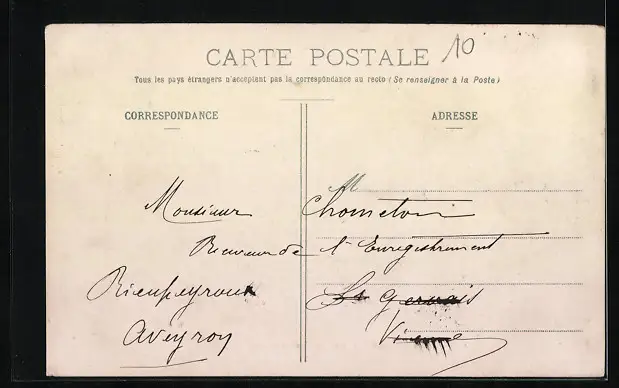 CARTE POSTALE 10
Tous les pays étrangers n'acceptent pas la correspondance au recto (Se renseigner à la Poste)
CORRESPONDANCE ADRESSE
M
Monsieur Chometon
Receveur de l'Enregistrement
Rieupeyroux St Gervais
Aveyron Vienne